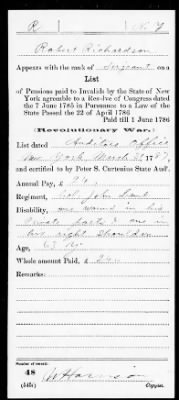 R N.Y
Robert Richardson
Appears with the rank of Sergeant on a
List
of Pensions paid to Invalids by the State of
New York agreeable to a Resolve of Congress dated
the 7 June 1785 in Pursuance to a Law of the
State Passed the 22 of April 1786
Paid till 1 June 1786
(Revolutionary War.)
List dated Auditors Office
New York March 1787,
and certified to by Peter S. Curtenius State Aud'r.
Annual Pay, £
Regiment, Col. John Lamb
Disability, one wound in his
private parts & one in
his right shoulder
Age, 63 Yrs
Whole amount Paid, £
Remarks:
Number of record:
48
Harrison
Copyist.